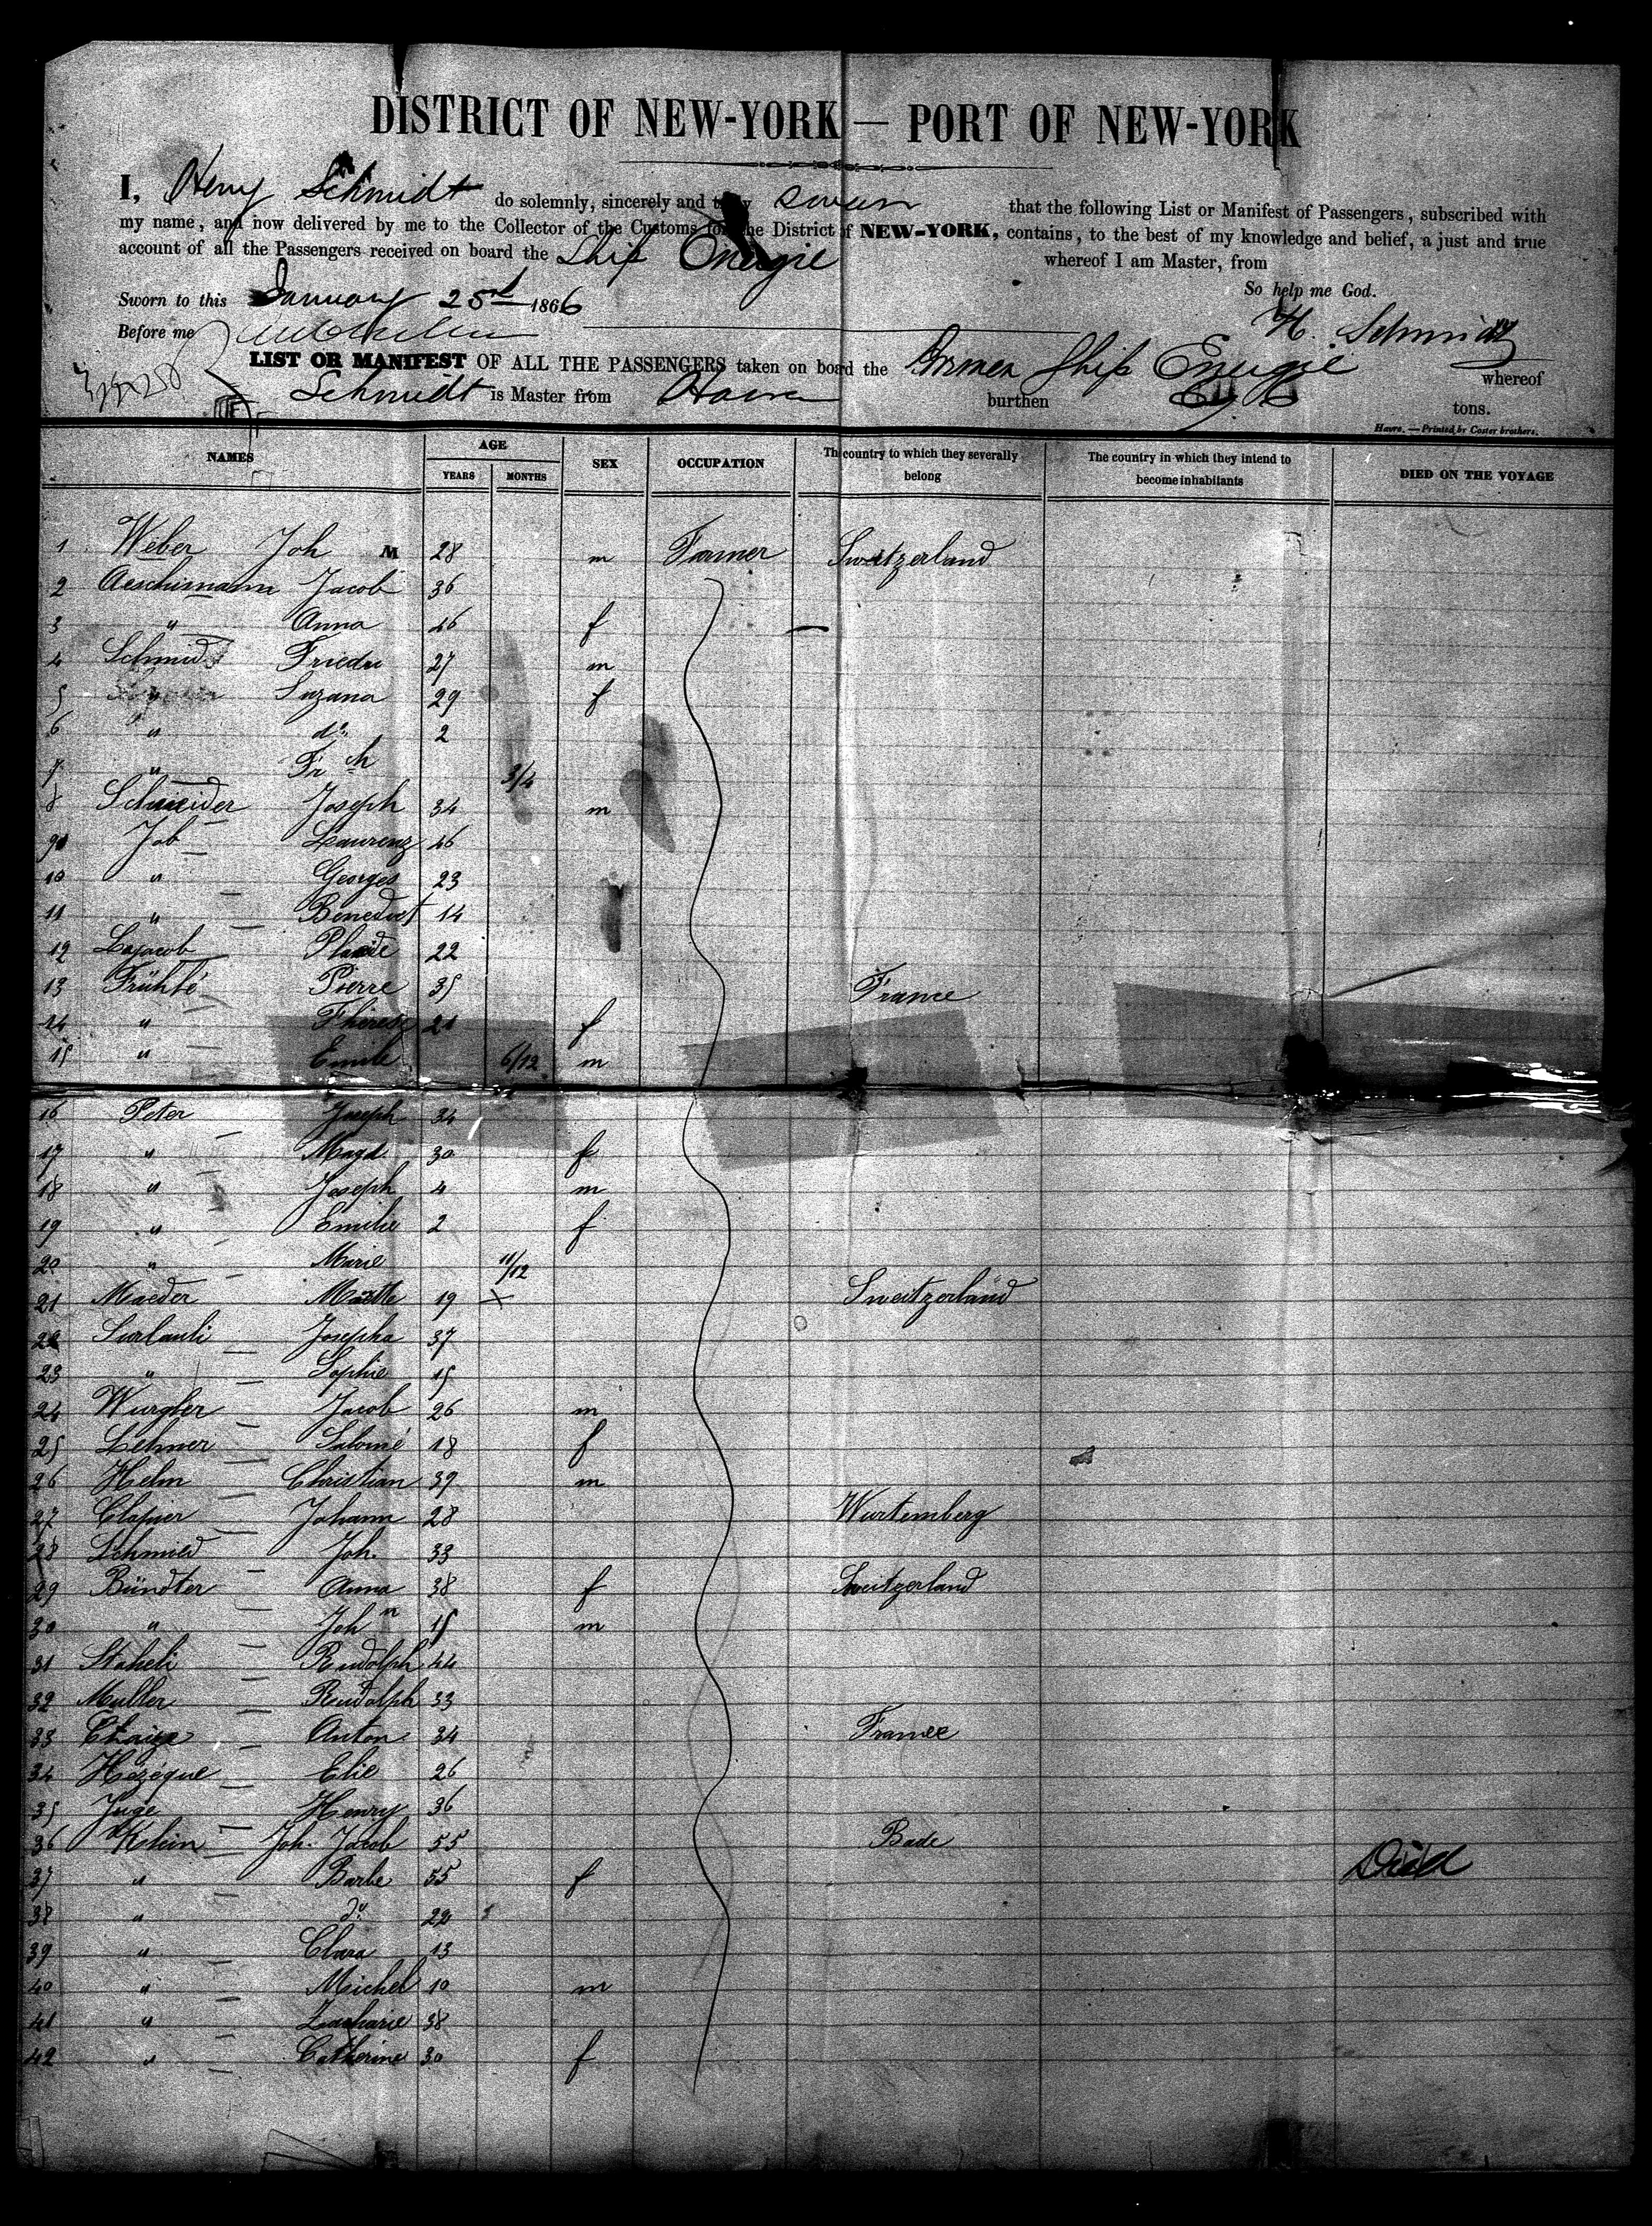 DISTRICT OF NEW-YORK — PORT OF NEW-YORK
I, Henry Schmidt do solemnly, sincerely and swear that the following List or Manifest of Passengers, subscribed with
my name, and now delivered by me to the Collector of the Customs for the District of NEW-YORK, contains, to the best of my knowledge and belief, a just and true
account of all the Passengers received on board the Ship Energie whereof I am Master, from
So help me God.
Sworn to this January 25 1866
H. Schmidt
Before me
LIST OR MANIFEST OF ALL THE PASSENGERS taken on board the Bremen Ship Energie whereof
Schmidt is Master from Havre burthen tons.
Havre. — Printed by Coster brothers.
NAMES AGE YEARS MONTHS SEX OCCUPATION The country to which they severally belong The country in which they intend to become inhabitants DIED ON THE VOYAGE
1 Weber Joh M 28 m Farmer Sweitzerland
2 Aeschimann Jacob 36
3 " Anna 26 f
4 Schmid Friedri 27 m
5 " Suzana 29 f
6 " do 2
7 " Frch 3/4
8 Schneider Joseph 34 m
9 Job Laurenz 46
10 " Georges 23
11 " Benedict 14
12 Lajacob Placide 22
13 Frühbé Pierre 35 France
14 " Therese 21 f
15 " Emile 6/12 m
16 Peter Joseph 34
17 " Magd. 30 f
18 " Joseph 4 m
19 " Emilie 2 f
20 " Marie 11/12
21 Maeder 19 Sweitzerland
22 Surlauli Josepha 37
23 " Sophie 15
24 Wurgler Jacob 26 m
25 Lehner Salomé 18 f
26 Helm Christian 39 m
27 Clapier Johann 28 Wurtemberg
28 Schmied Joh. 33
29 Bündter Anna 38 f Sweitzerland
30 " John 15 m
31 Staheli Rudolph 44
32 Muller Rudolph 33
33 Anton 34 France
34 Hézéque Elie 26
35 Juge Henry 36
36 Klein Joh. Jacob 55 Bade
37 " Barbe 55 f Died
38 " do 22
39 " Clara 13
40 " Michel 10 m
41 " Zacharie 38
42 " Catherine 30 f